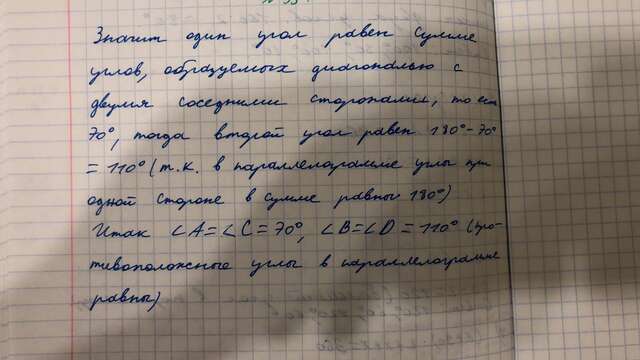 Значит один угол равен сумме
углов, образуемых диагональю с
двумя соседними сторонами, то есть
70°, тогда второй угол равен 180° - 70°
= 110° (т.к. в параллелограмме углы при
одной стороне в сумме равны 180°)
Итак ∠A = ∠C = 70°, ∠B = ∠D = 110° (про-
тивоположные углы в параллелограмме
равны)